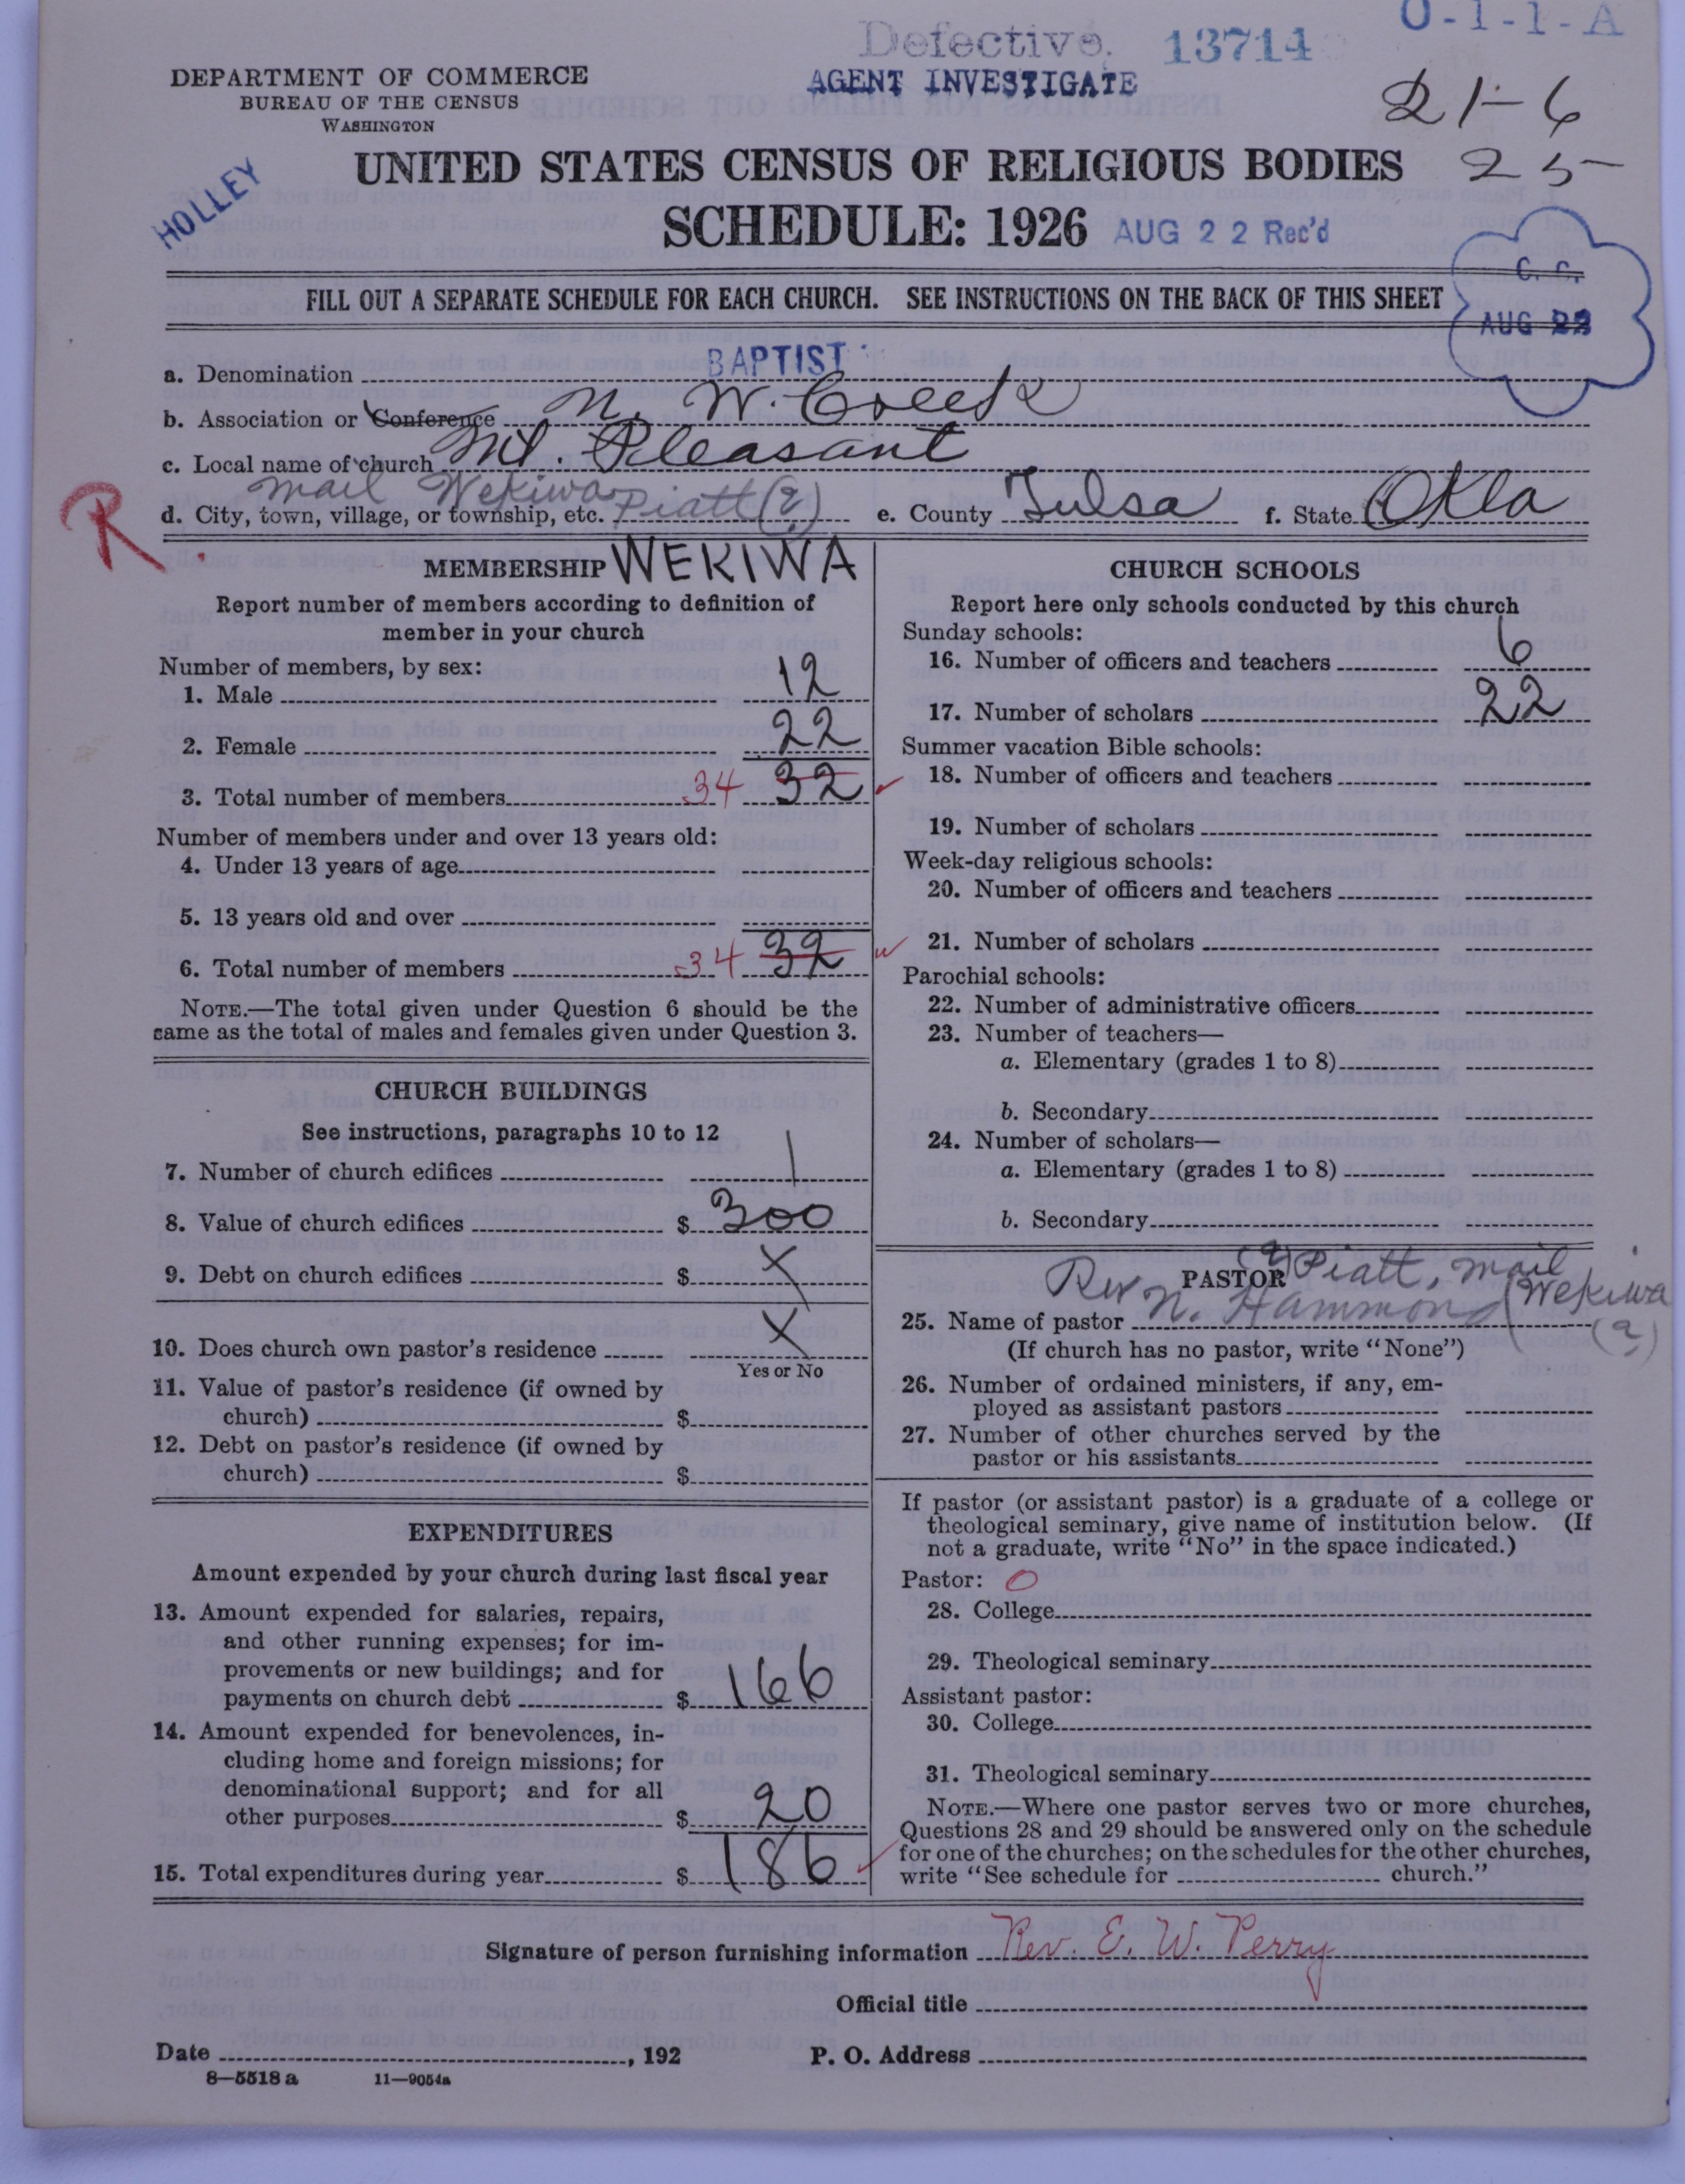 Defective. 13714 0-1-1-A
AGENT INVESTIGATE
DEPARTMENT OF COMMERCE
BUREAU OF THE CENSUS
WASHINGTON
21-6
25-
HOLLEY
UNITED STATES CENSUS OF RELIGIOUS BODIES
SCHEDULE: 1926 AUG 22 Rec'd
C. C.
AUG 22
FILL OUT A SEPARATE SCHEDULE FOR EACH CHURCH. SEE INSTRUCTIONS ON THE BACK OF THIS SHEET
a. Denomination BAPTIST
b. Association or Conference N. W. Creek
c. Local name of church Mt. Pleasant
mail Wekiwa
R
d. City, town, village, or township, etc. Piatt (?) e. County Tulsa f. State Okla
MEMBERSHIP WEKIWA
Report number of members according to definition of
member in your church
Number of members, by sex:
1. Male 12
2. Female 22
3. Total number of members 34 32
Number of members under and over 13 years old:
4. Under 13 years of age
5. 13 years old and over
6. Total number of members 34 32
NOTE.—The total given under Question 6 should be the
same as the total of males and females given under Question 3.
CHURCH BUILDINGS
See instructions, paragraphs 10 to 12
7. Number of church edifices 1
8. Value of church edifices $ 300
9. Debt on church edifices $ X
10. Does church own pastor's residence X
Yes or No
11. Value of pastor's residence (if owned by
church) $
12. Debt on pastor's residence (if owned by
church) $
EXPENDITURES
Amount expended by your church during last fiscal year
13. Amount expended for salaries, repairs,
and other running expenses; for im-
provements or new buildings; and for
payments on church debt $ 166
14. Amount expended for benevolences, in-
cluding home and foreign missions; for
denominational support; and for all
other purposes $ 20
15. Total expenditures during year $ 186
CHURCH SCHOOLS
Report here only schools conducted by this church
Sunday schools:
16. Number of officers and teachers 6
17. Number of scholars 22
Summer vacation Bible schools:
18. Number of officers and teachers
19. Number of scholars
Week-day religious schools:
20. Number of officers and teachers
21. Number of scholars
Parochial schools:
22. Number of administrative officers
23. Number of teachers—
a. Elementary (grades 1 to 8)
b. Secondary
24. Number of scholars—
a. Elementary (grades 1 to 8)
b. Secondary
PASTOR (?) Piatt, mail
(Wekiwa (?)
25. Name of pastor Rev N. Hammond
(If church has no pastor, write "None")
26. Number of ordained ministers, if any, em-
ployed as assistant pastors
27. Number of other churches served by the
pastor or his assistants
If pastor (or assistant pastor) is a graduate of a college or
theological seminary, give name of institution below. (If
not a graduate, write "No" in the space indicated.)
Pastor: O
28. College
29. Theological seminary
Assistant pastor:
30. College
31. Theological seminary
NOTE.—Where one pastor serves two or more churches,
Questions 28 and 29 should be answered only on the schedule
for one of the churches; on the schedules for the other churches,
write "See schedule for church."
Signature of person furnishing information Rev. E. W. Perry
Official title
Date , 192 P. O. Address
8—5518 a 11—9054a